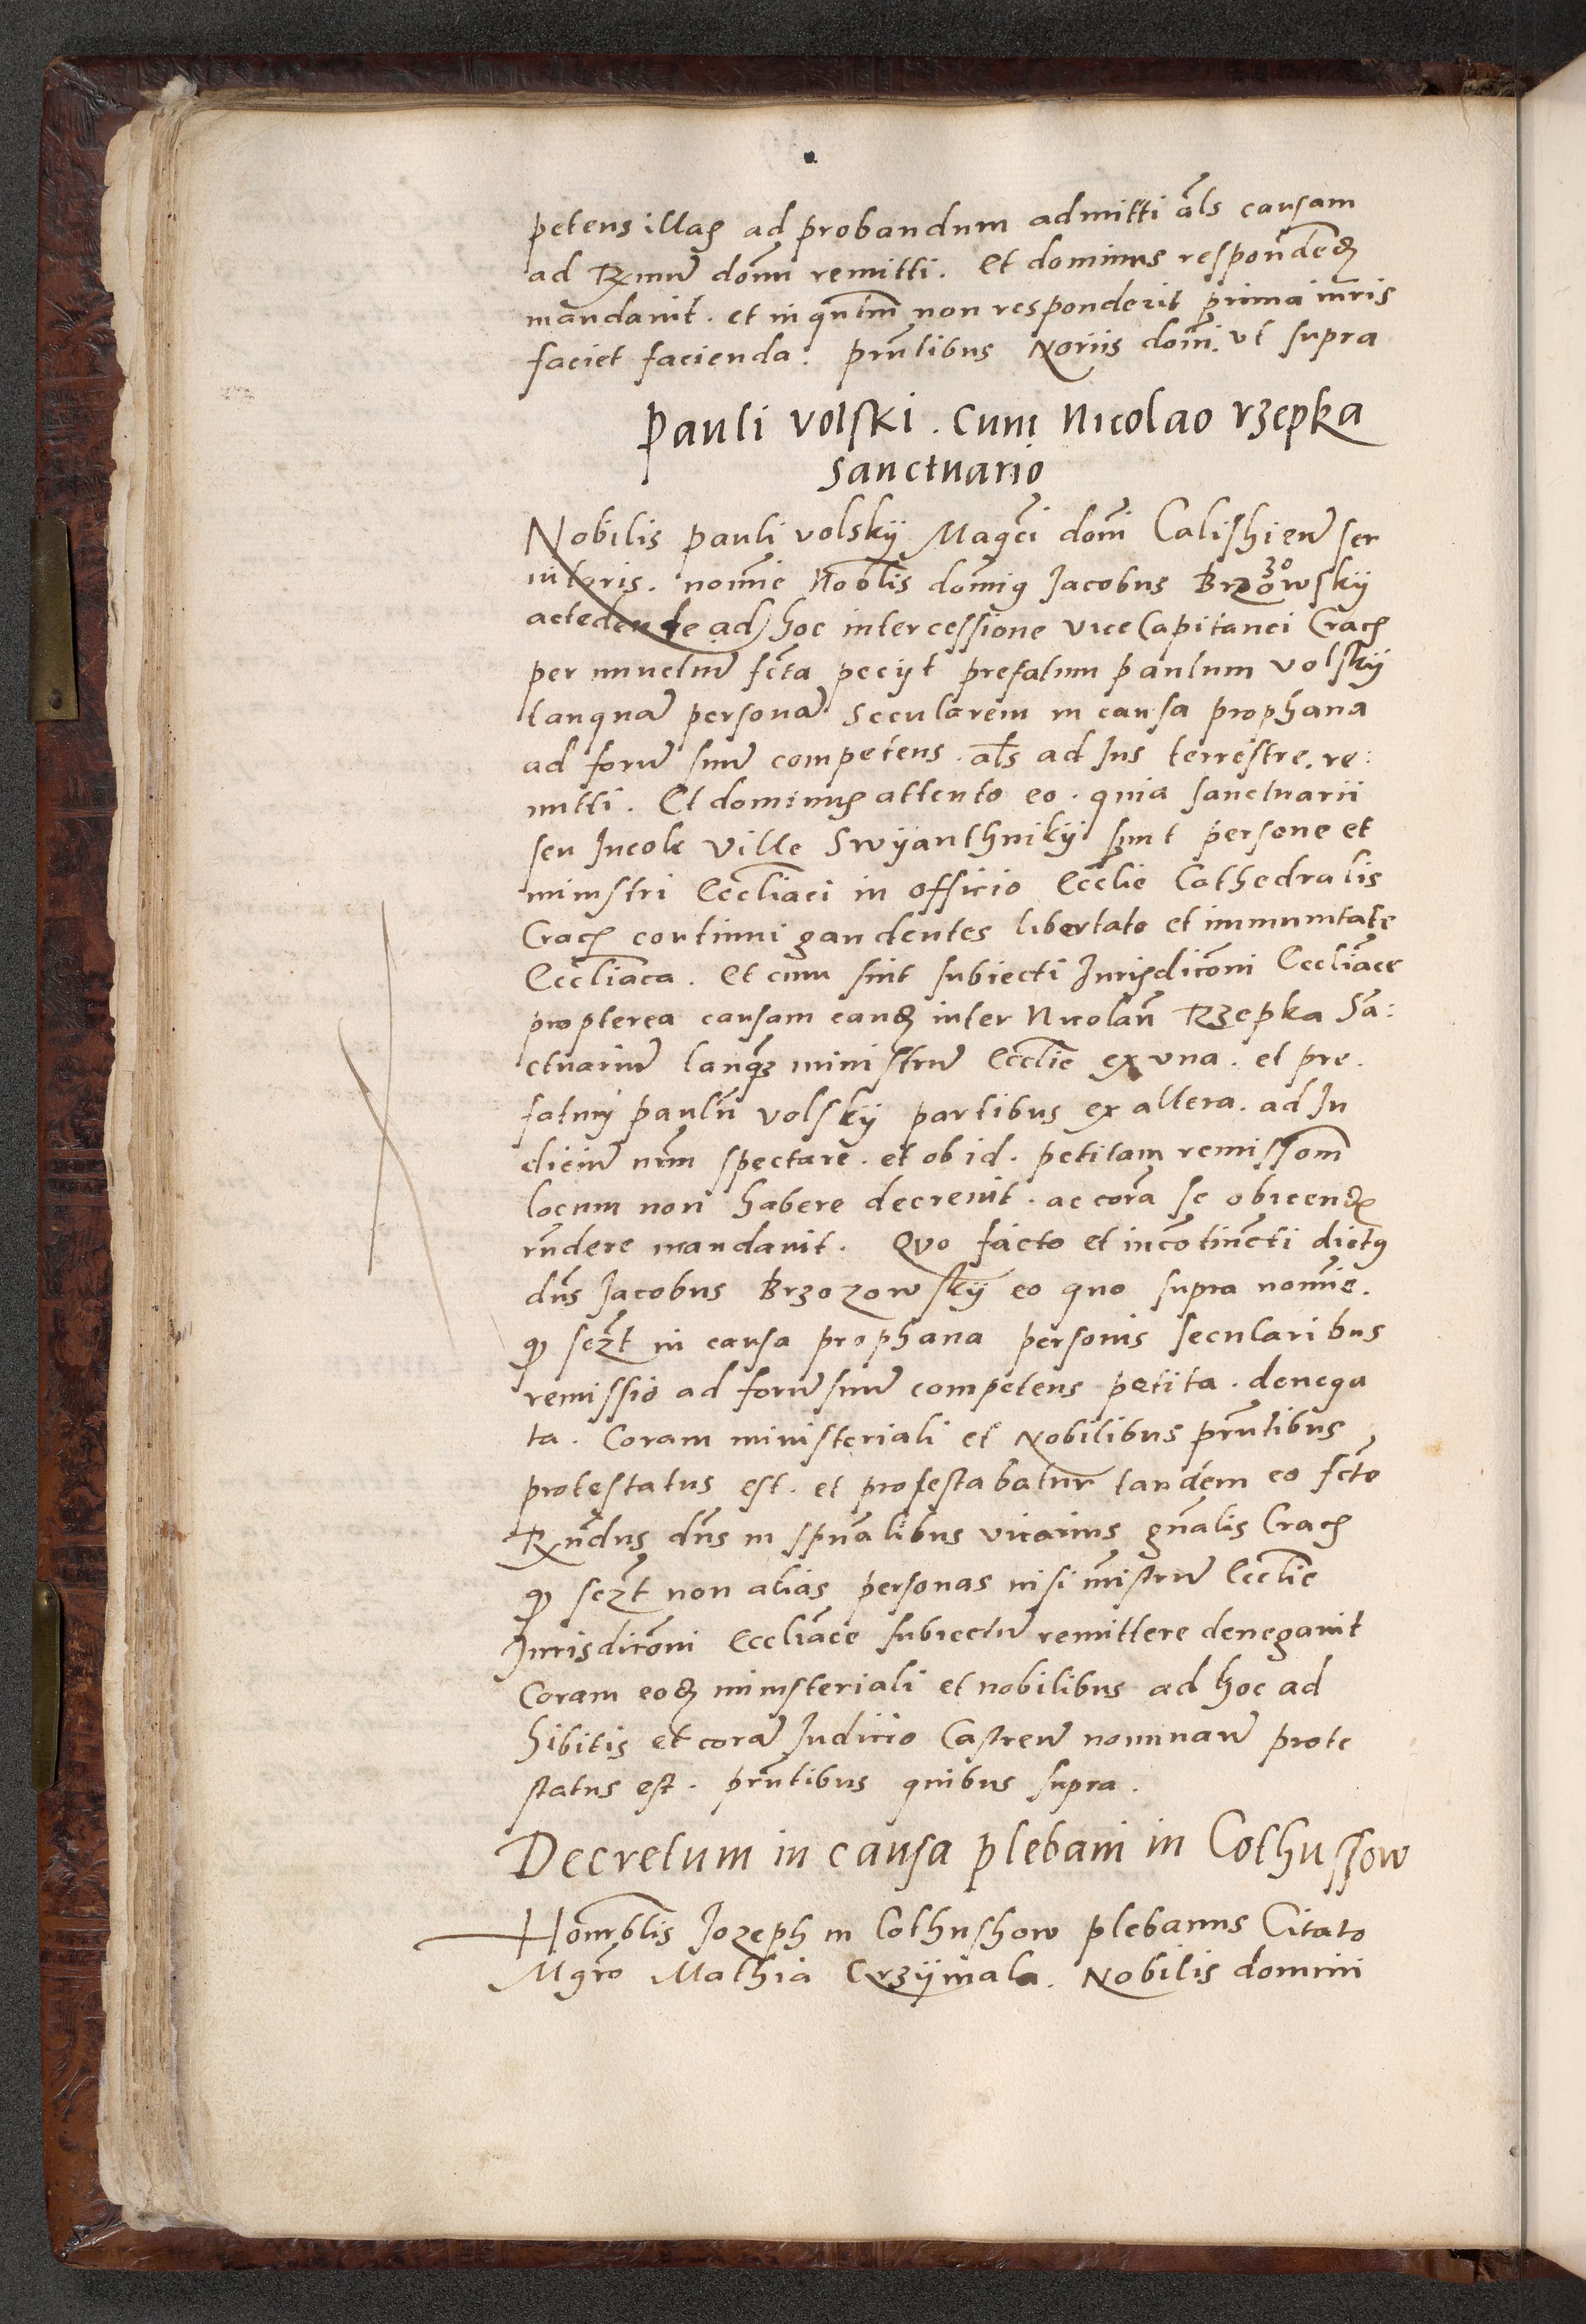 petens illas ad probandum admitti als causam
ad Rmum domi remitti. Et dominus respondeȝ
mandauit. et in quntm non responderit prima iuris
faciet facienda. pntibus Noriis domi. vt supra
Pauli volski. cum Nicolao rzepka
sanctuario
Nobilis pauli volskij Magci domi Calishien ser
uitoris. nomie Nobilis domig Jacobus Brzozowskij
accedente ad hoc intercessione vice Capitanei Crac
per nunctiu fcta pecijt prefatum paulum volskij
tanqua persona secularem in causa prophana
ad foru suu competens. als ad Jus terrestre. re:
mitti. Et dominus attento eo. quia sanctuarii
seu Incole Ville Swijanthnikij sunt persone et
ministri Eccliaci in officio Ecclie Cathedralis
Crac continui gaudentes libertate et immunitate
Eccliaca. Et cum sint subiecti Jurisdiconi Eccliace
propterea causam eanȝ inter Nicolau Rzepka Sa:
ctuariu tanqȝ ministru Ecclie ex vna. et pre.
fatum paulu volskij partibus ex altera. ad Ju
diciu nrm spectare. et ob id. petitam remissiom
locum non habere decreuit. ac cora se obicenȝ
rndere mandauit. Quo facto et incontincti dictg
dns Jacobus Brzozowskij eo quo supra nomie.
qȝ sczt in causa prophana personis secularibus
remissio ad foru suu competens petita. denega
ta. Coram ministeriali et Nobilibus pntibus
protestatus est. et protestabatur tandem eo fcto
Rndus dns in spualibus vicarius gnalis Crac
qȝ sczt non alias personas nisi mistru Ecclie
Jurisdiconi Eccliace subiectu remittere denegauit
Coram eoȝ ministeriali et nobilibus ad hoc ad
hibitis et cora Judicio Castren nominan prote
status est. pntibus quibus supra.
Decretum in causa plebani in Cothussow
Honrblis Jozeph in Cothushow plebanus Citato
Mgro Mathia Crzijmala. Nobilis domini